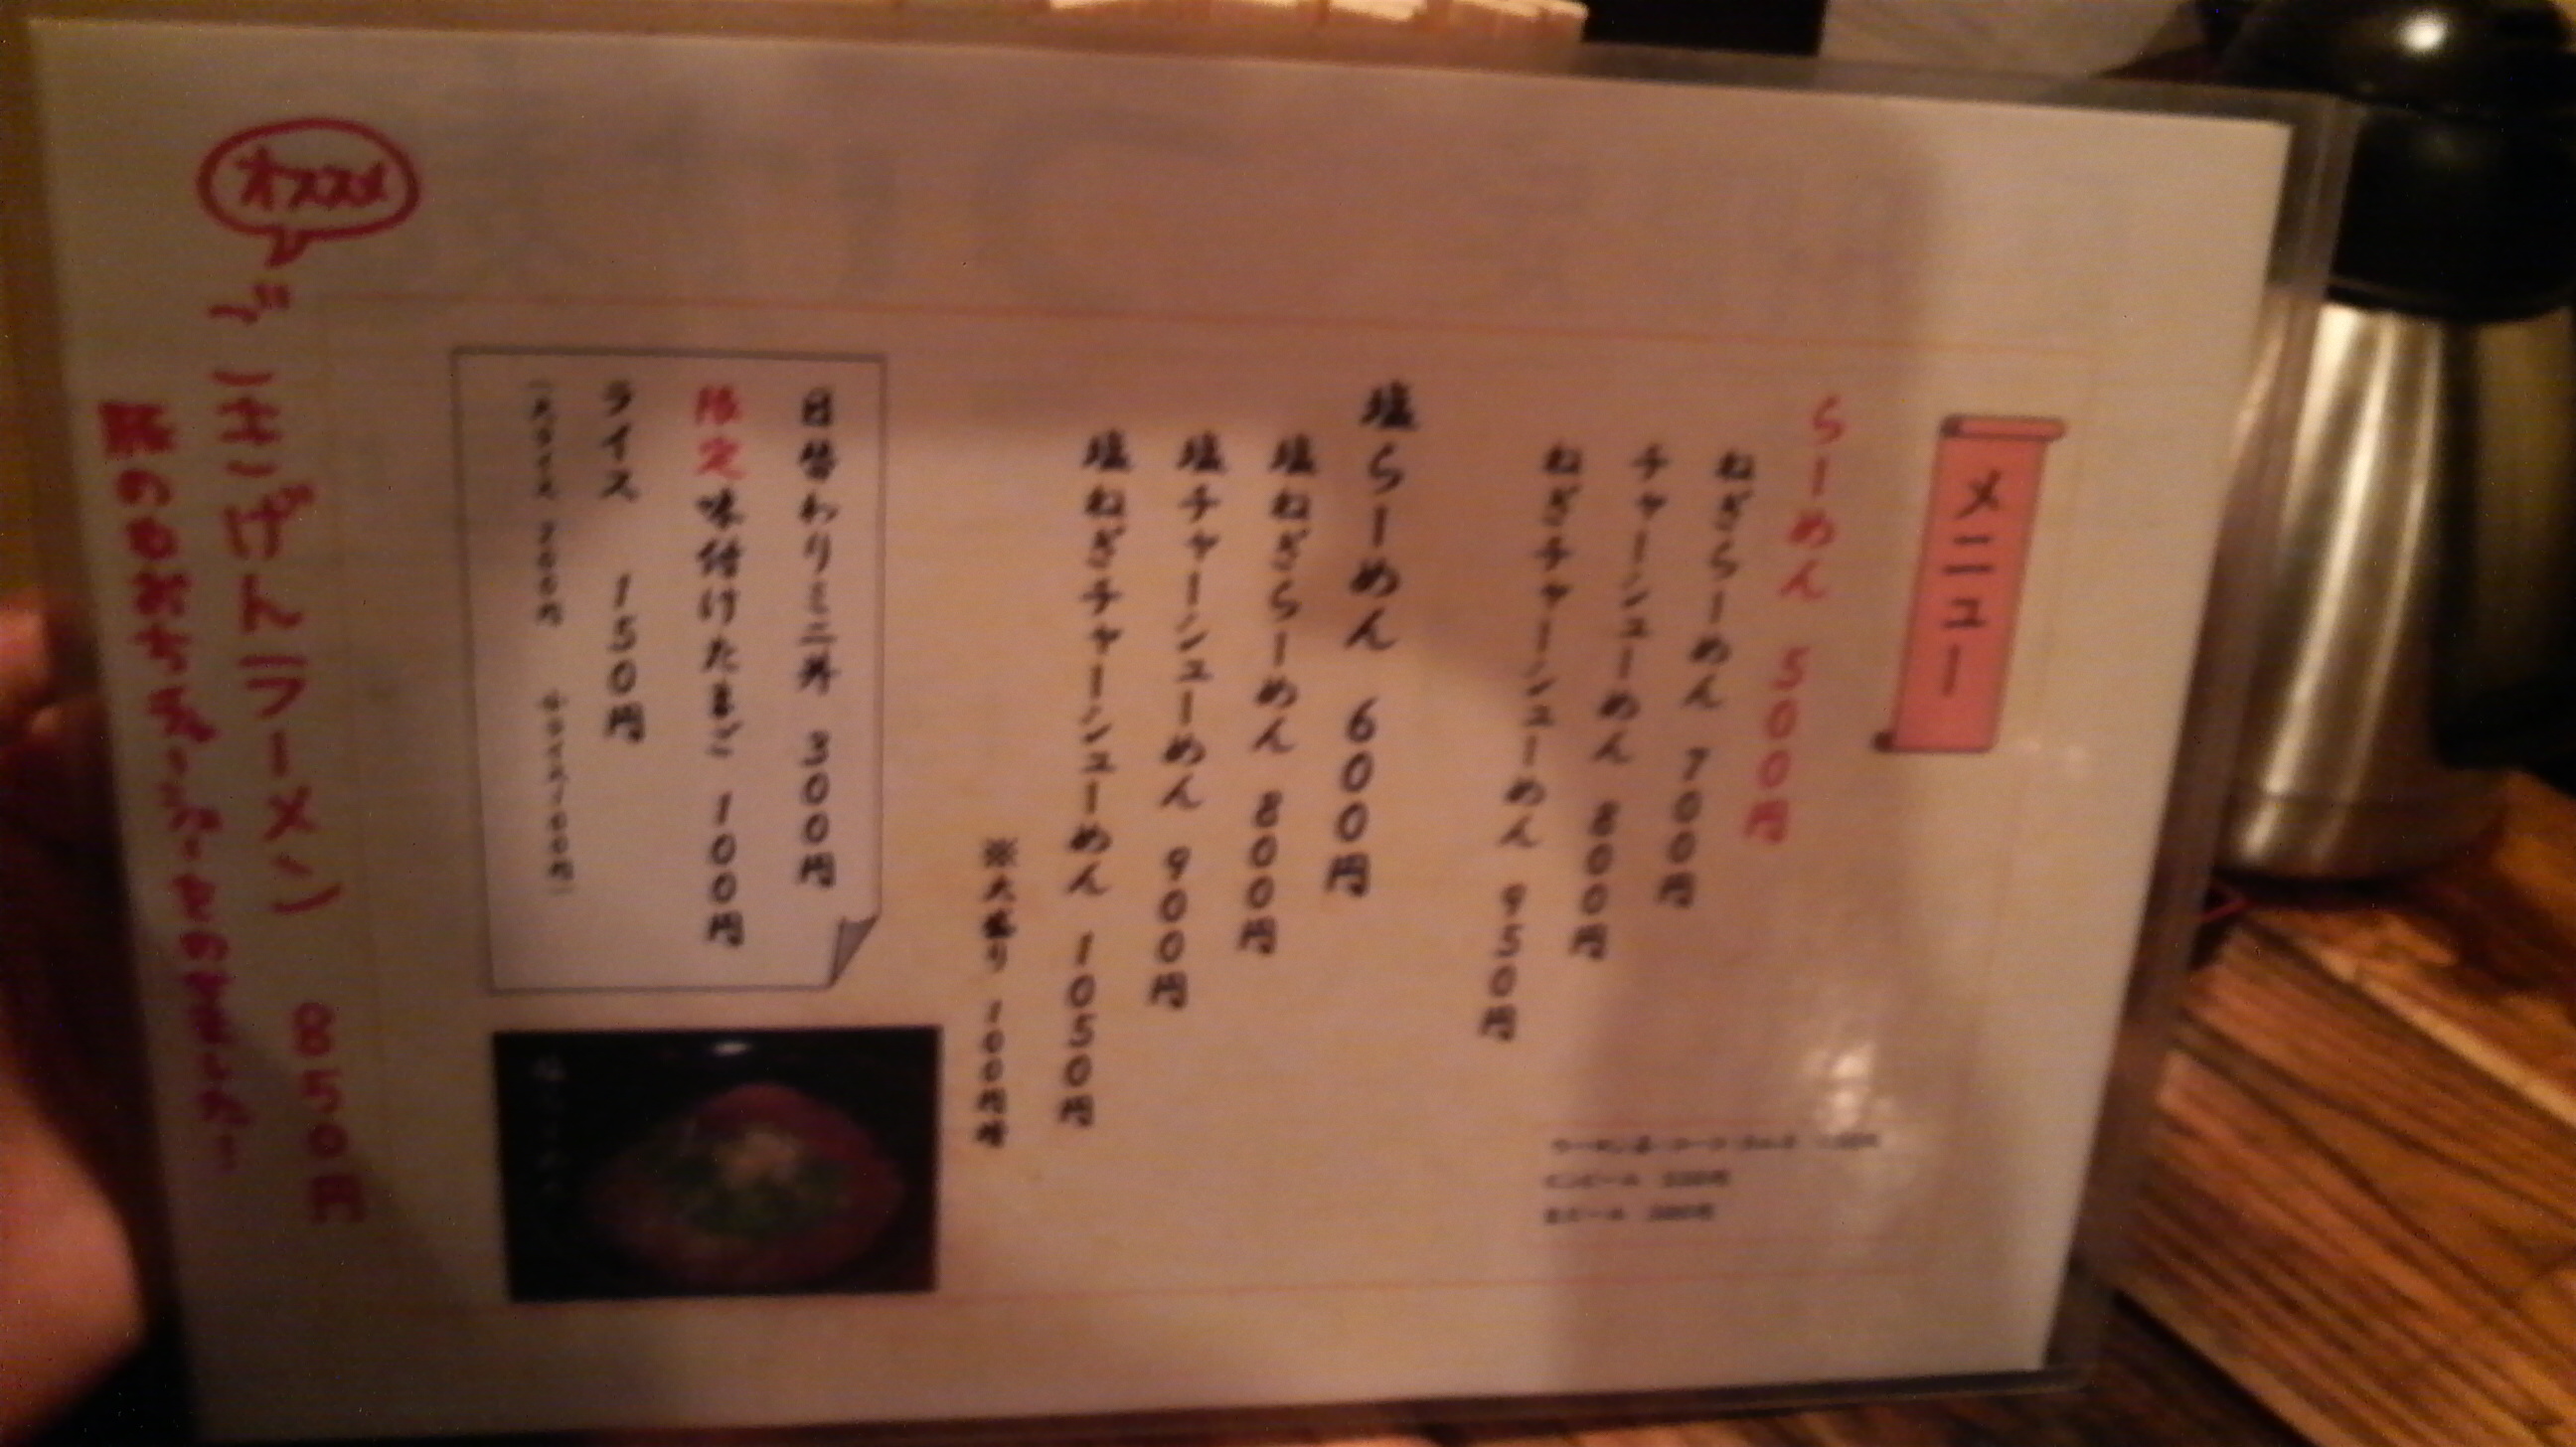 メニュー
らーめん 500円
ねぎらーめん 700円
チャーシューめん 800円
ねぎチャーシューめん 950円
塩らーめん 600円
塩ねぎらーめん 800円
塩チャーシューめん 900円
塩ねぎチャーシューめん 1050円
※大盛り 100円増
日替わりミニ丼 300円
限定味付けたまご 100円
ライス 150円
(大ライス 200円 小ライス100円)
オススメ
ごきげんラーメン 850円